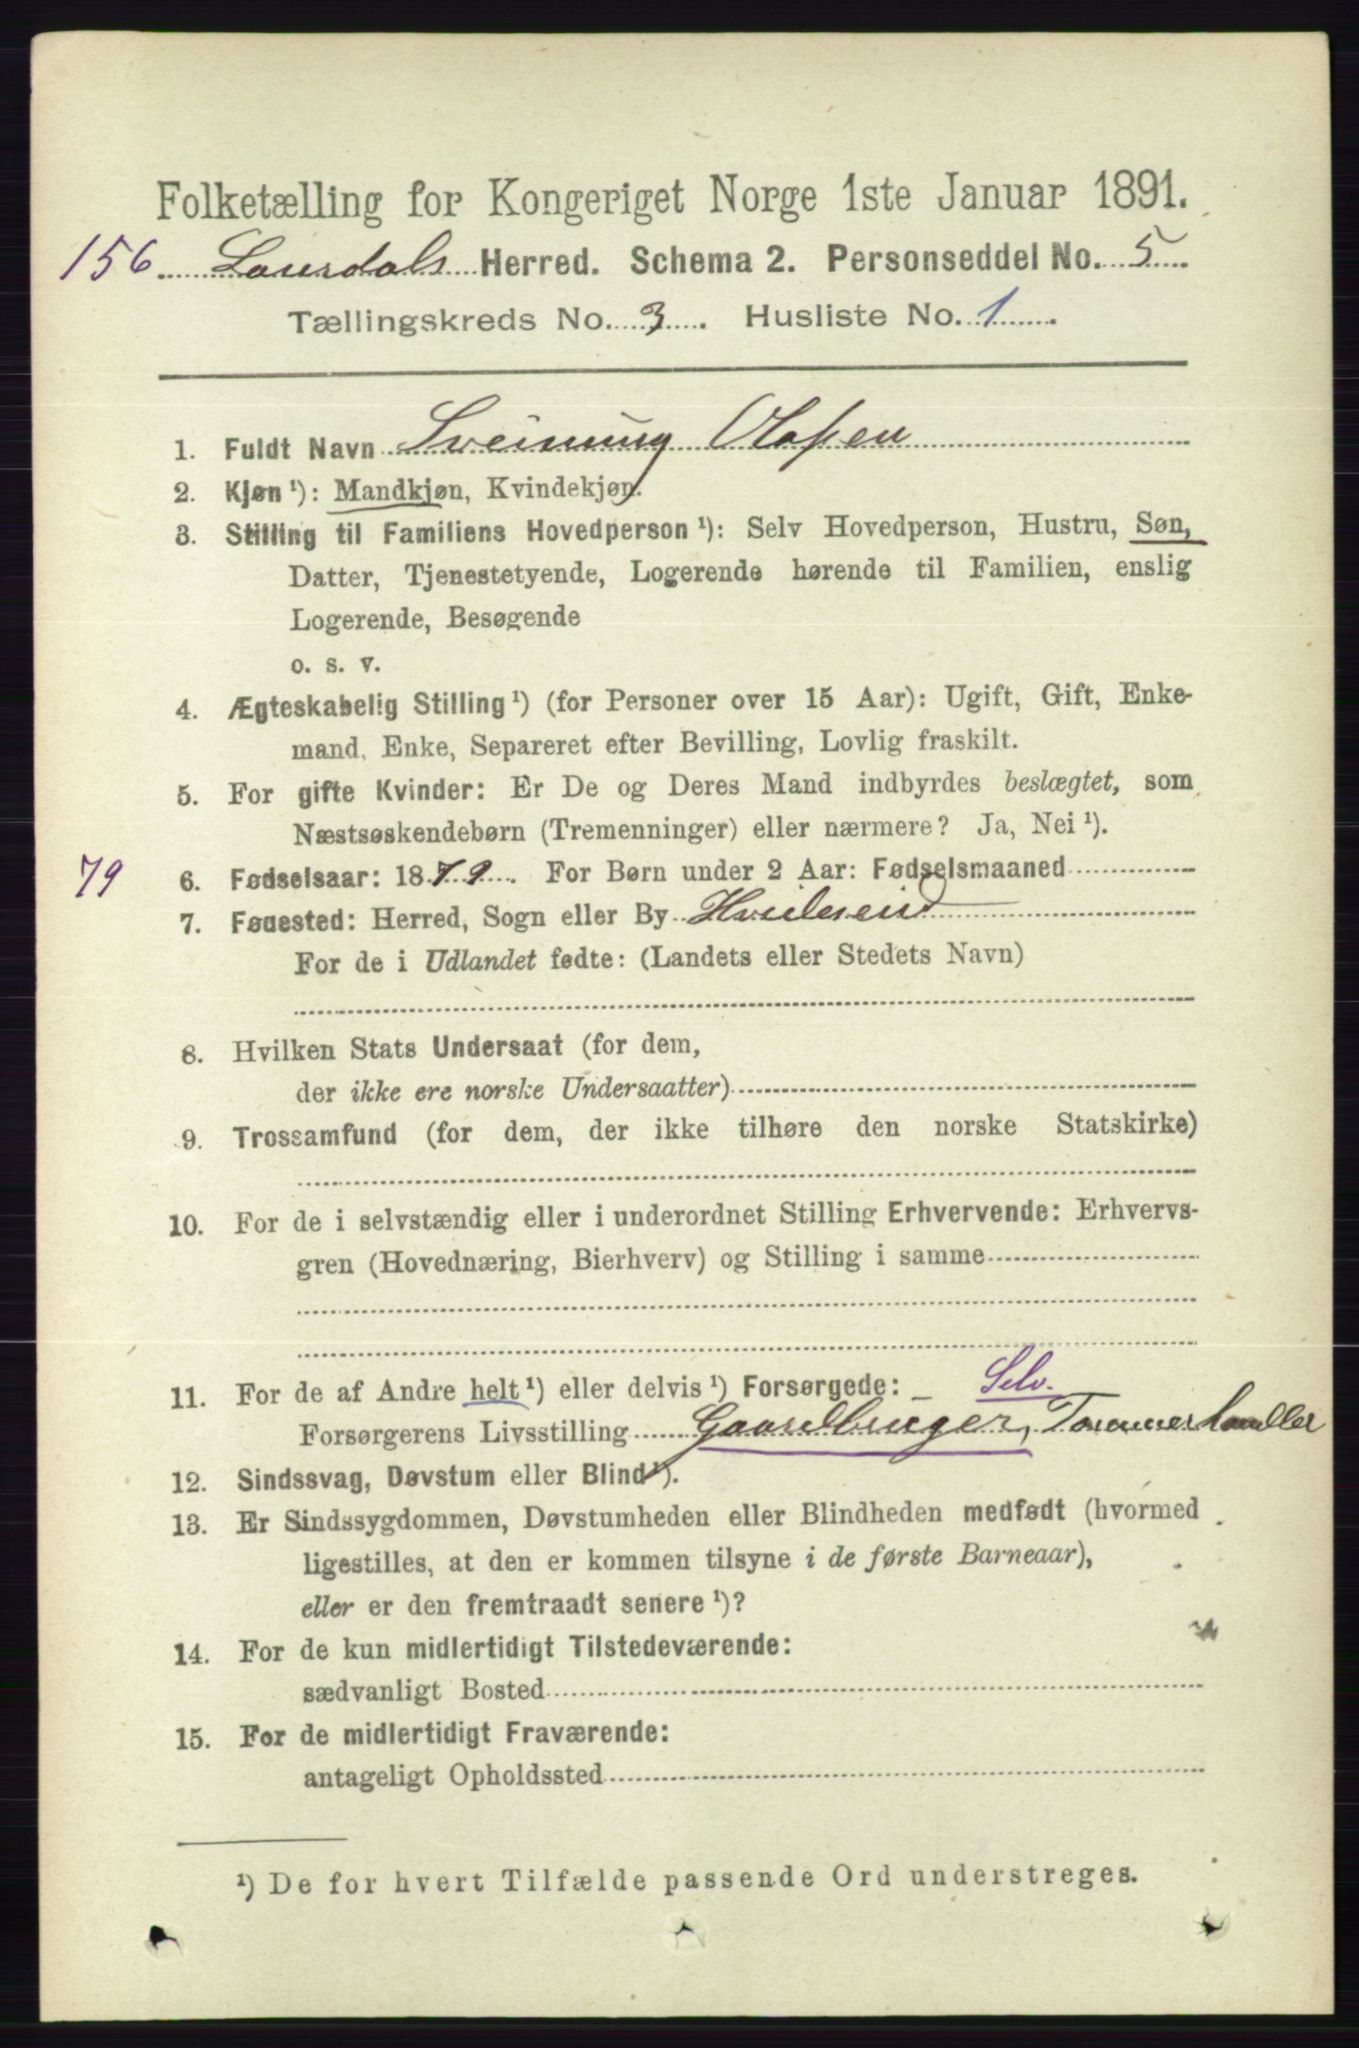 Folketælling for Kongeriget Norge 1ste Januar 1891.
156 Laurdals Herred. Schema 2. Personseddel No. 5
Tællingskreds No. 3. Husliste No. 1
1. Fuldt Navn Sveinung Olafsen
2. Kjøn ¹): Mandkjøn, Kvindekjøn.
3. Stilling til Familiens Hovedperson ¹): Selv Hovedperson, Hustru, Søn,
Datter, Tjenestetyende, Logerende hørende til Familien, enslig
Logerende, Besøgende
o. s. v.
4. Ægteskabelig Stilling ¹) (for Personer over 15 Aar): Ugift, Gift, Enke-
mand, Enke, Separeret efter Bevilling, Lovlig fraskilt.
5. For gifte Kvinder: Er De og Deres Mand indbyrdes beslægtet, som
Næstsøskendebørn (Tremenninger) eller nærmere? Ja, Nei ¹).
79 6. Fødselsaar: 1879. For Børn under 2 Aar: Fødselsmaaned
7. Fødested: Herred, Sogn eller By Hvideseid
For de i Udlandet fødte: (Landets eller Stedets Navn)
8. Hvilken Stats Undersaat (for dem,
der ikke ere norske Undersaatter)
9. Trossamfund (for dem, der ikke tilhøre den norske Statskirke)
10. For de i selvstændig eller i underordnet Stilling Erhvervende: Erhvervs-
gren (Hovednæring, Bierhverv) og Stilling i samme
11. For de af Andre helt ¹) eller delvis ¹) Forsørgede: Selv.
Forsørgerens Livsstilling Gaardbruger, Tømmerhandler
12. Sindssvag, Døvstum eller Blind ¹).
13. Er Sindssygdommen, Døvstumheden eller Blindheden medfødt (hvormed
ligestilles, at den er kommen tilsyne i de første Barneaar),
eller er den fremtraadt senere ¹)?
14. For de kun midlertidigt Tilstedeværende:
sædvanligt Bosted
15. For de midlertidigt Fraværende:
antageligt Opholdssted
¹) De for hvert Tilfælde passende Ord understreges.